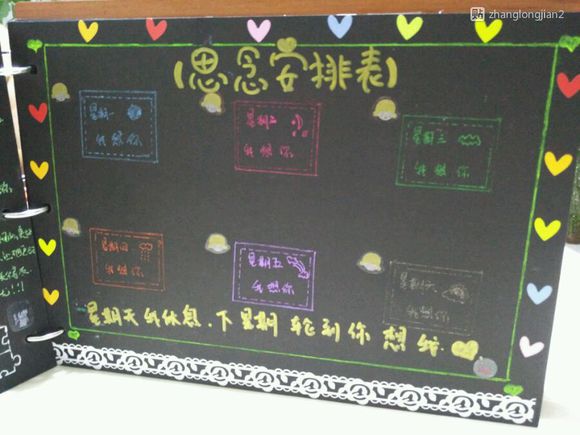 贴 zhanglongjian2
(思念安排表)
星期一
我想你
星期二
我想你
星期三
我想你
星期四
我想你
星期五
我想你
星期六
我想你
星期天我休息.下星期轮到你想我.